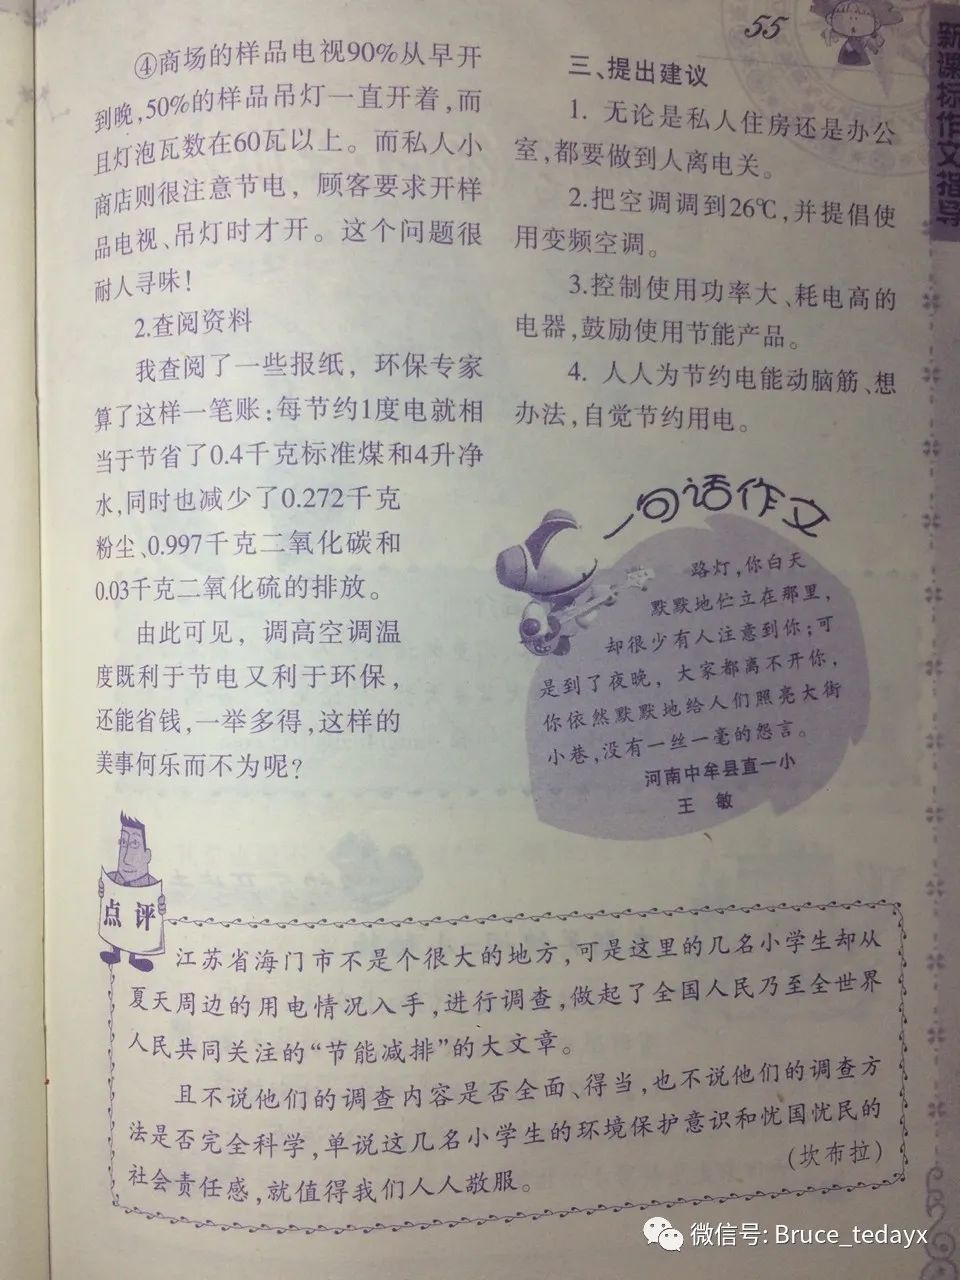 55
新课标作文指导
④商场的样品电视90%从早开
到晚,50%的样品吊灯一直开着,而
且灯泡瓦数在60瓦以上。而私人小
商店则很注意节电，顾客要求开样
品电视、吊灯时才开。这个问题很
耐人寻味!
2.查阅资料
我查阅了一些报纸，环保专家
算了这样一笔账:每节约1度电就相
当于节省了0.4千克标准煤和4升净
水,同时也减少了0.272千克
粉尘、0.997千克二氧化碳和
0.03千克二氧化硫的排放。
由此可见，调高空调温
度既利于节电又利于环保，
还能省钱，一举多得,这样的
美事何乐而不为呢?
三、提出建议
1. 无论是私人住房还是办公
室,都要做到人离电关。
2.把空调调到26℃,并提倡使
用变频空调。
3.控制使用功率大、耗电高的
电器,鼓励使用节能产品。
4. 人人为节约电能动脑筋、想
办法,自觉节约用电。
一句话作文
路灯,你白天
默默地伫立在那里，
却很少有人注意到你;可
是到了夜晚，大家都离不开你，
你依然默默地给人们照亮大街
小巷,没有一丝一毫的怨言。
河南中牟县直一小
王 敏
点 评
江苏省海门市不是个很大的地方,可是这里的几名小学生却从
夏天周边的用电情况入手,进行调查,做起了全国人民乃至全世界
人民共同关注的“节能减排”的大文章。
且不说他们的调查内容是否全面、得当，也不说他们的调查方
法是否完全科学，单说这几名小学生的环境保护意识和忧国忧民的
社会责任感,就值得我们人人敬服。
(坎布拉)
微信号: Bruce_tedayx